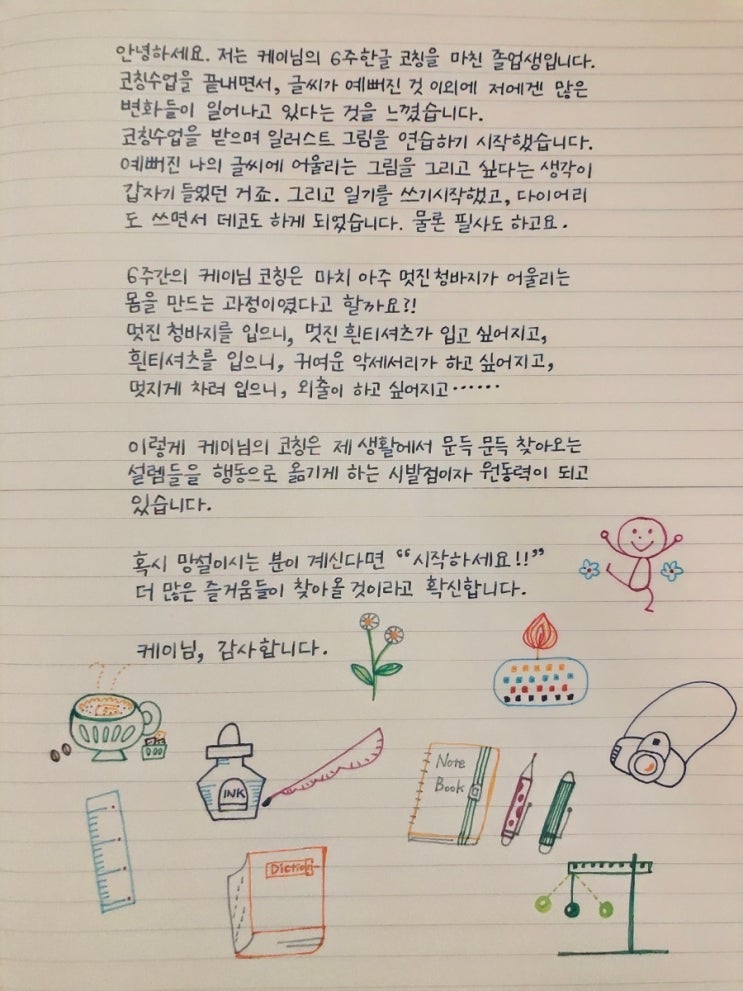 안녕하세요. 저는 케이님의 6주한글 코칭을 마친 졸업생입니다.
코칭수업을 끝내면서, 글씨가 예뻐진 것 이외에 저에겐 많은
변화들이 일어나고 있다는 것을 느꼈습니다.
코칭수업을 받으며 일러스트 그림을 연습하기 시작했습니다.
예뻐진 나의 글씨에 어울리는 그림을 그리고 싶다는 생각이
갑자기 들었던 거죠. 그리고 일기를 쓰기시작했고, 다이어리
도 쓰면서 데코도 하게 되었습니다. 물론 필사도 하고요.
6주간의 케이님 코칭은 마치 아주 멋진 청바지가 어울리는
몸을 만드는 과정이였다고 할까요?!
멋진 청바지를 입으니, 멋진 흰티셔츠가 입고 싶어지고,
흰티셔츠를 입으니, 귀여운 악세서리가 하고 싶어지고,
멋지게 차려 입으니, 외출이 하고 싶어지고⋯⋯
이렇게 케이님의 코칭은 제 생활에서 문득 문득 찾아오는
설렘들을 행동으로 옮기게 하는 시발점이자 원동력이 되고
있습니다.
혹시 망설이시는 분이 계신다면 “시작하세요!!”
더 많은 즐거움들이 찾아올 것이라고 확신합니다.
케이님, 감사합니다.
INK
Note
Book